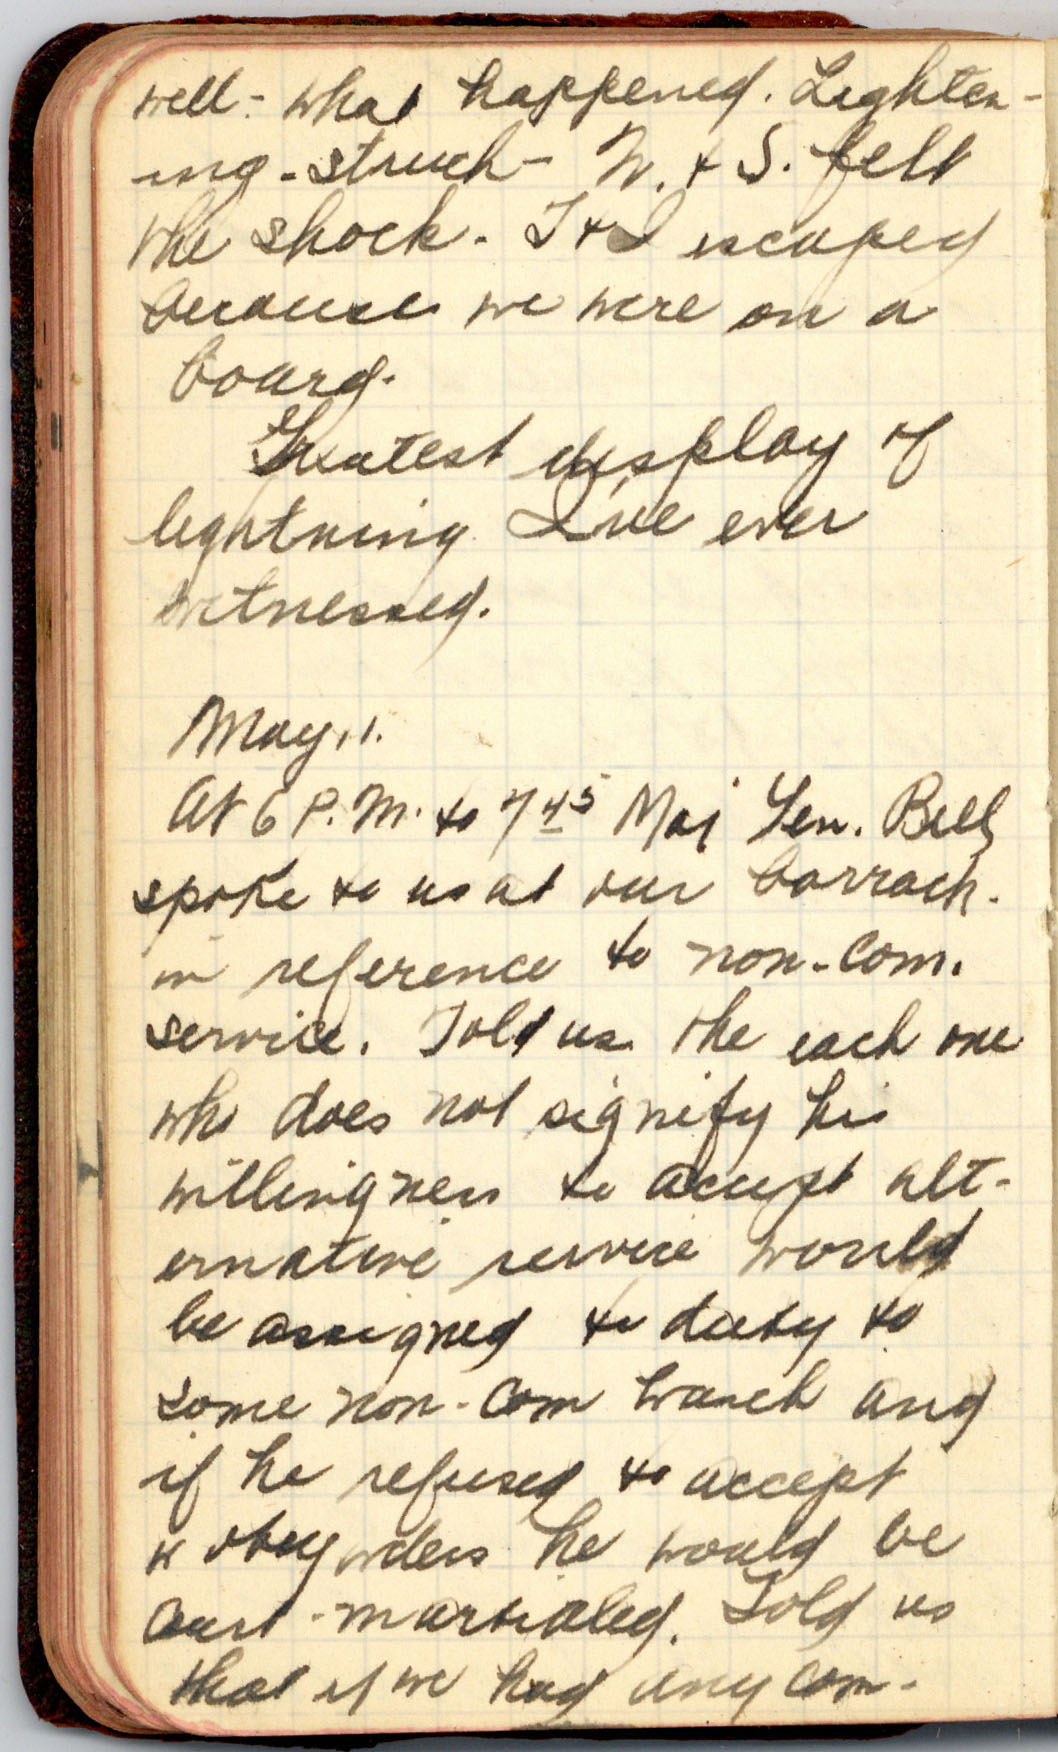 well - what happened. Lighten-
ing - struck - N. & S. felt
the shock - T & I escaped
because we were on a
board.
Greatest display of
lightning I've ever
witnessed.
May 11.
At 6 P.M. to 7 45 Maj Gen. Bell
spoke to us at our barrack.
in reference to non-com.
service. Told us the each one
who does not signify his
willingness to accept alt-
ernative service would
be assigned to duty to
some non-com branch and
if he refused to accept
or obey orders he would be
court-martialed. Told us
that if we had any com-